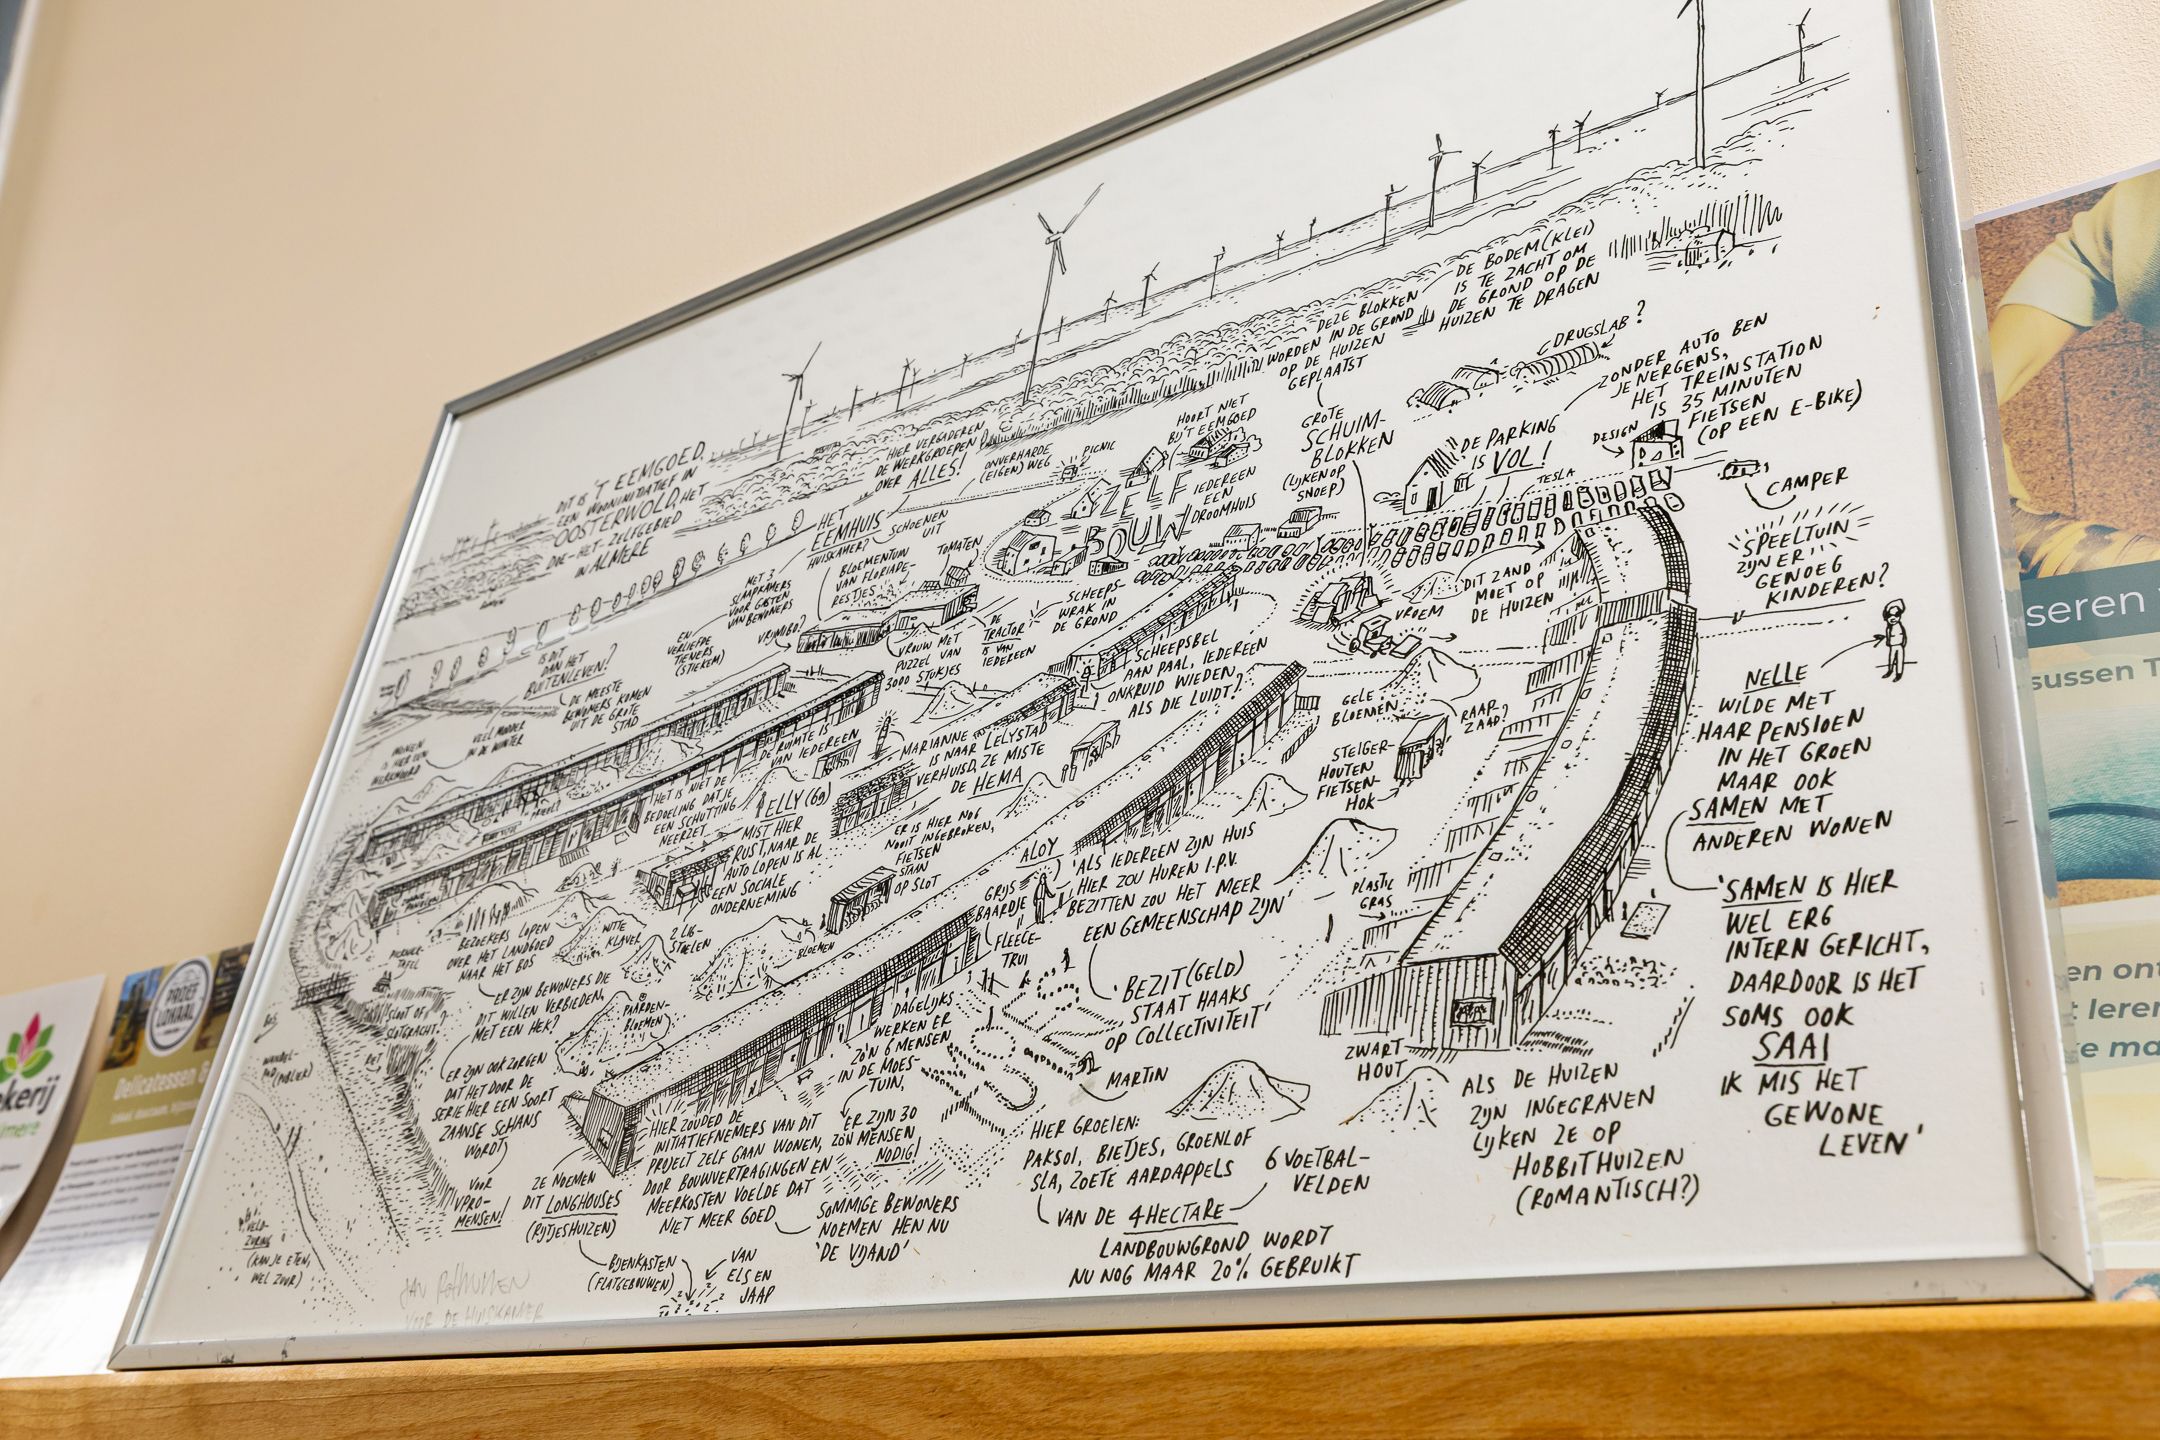 DIT IS 'T EEMGOED,
EEN WOONINITIATIEF IN
OOSTERWOLD, HET
DOE-HET-ZELFGEBIED
IN ALMERE
HIER VERGADEREN
DE WERKGROEPEN
OVER ALLES!
ONVERHARDE
(EIGEN) WEG
PICNIC
HOORT NIET
BIJ 'T EEMGOED
ZELF
BOUW
IEDEREEN
EEN
DROOMHUIS
GROTE
SCHUIM-
BLOKKEN
(LIJKEN OP
SNOEP)
DEZE BLOKKEN
WORDEN IN DE GROND
OP DE HUIZEN
GEPLAATST
DE BODEM (KLEI)
IS TE ZACHT OM
DE GROND OP DE
HUIZEN TE DRAGEN
DRUGSLAB?
ZONDER AUTO BEN
JE NERGENS,
HET TREINSTATION
IS 35 MINUTEN
FIETSEN
(OP EEN E-BIKE)
DESIGN
DE PARKING
IS VOL!
TESLA
CAMPER
SPEELTUIN
ZIJN ER
GENOEG
KINDEREN?
HET
EEMHUIS
HUISKAMER?
SCHOENEN
UIT
MET 3
SLAAPKAMERS
VOOR GASTEN
VAN BEWONERS
EN
VERLIEFDE
TIENERS
(STIEKEM)
VRIJMIBO?
BLOEMENTUIN
VAN FLORIADE-
RESTJES
TOMATEN
VROUW MET
PUZZEL VAN
3000 STUKJES
DE
TRACTOR
IS VAN
IEDEREEN
SCHEEPS-
WRAK IN
DE GROND
VROEM
DIT ZAND
MOET OP
DE HUIZEN
IS DIT
DAN HET
BUITENLEVEN?
DE MEESTE
BEWONERS KOMEN
UIT DE GROTE
STAD
VEEL MODDER
IN DE WINTER
WONEN
IS HIER EEN
WERKWOORD
SCHEEPSBEL
AAN PAAL, IEDEREEN
ONKRUID WIEDEN
ALS DIE LUIDT?
GELE
BLOEMEN
RAAR
ZAAD?
STEIGER-
HOUTEN
FIETSEN-
HOK
HET IS NIET DE
BEDOELING DAT JE
EEN SCHUTTING
NEERZET
DE RUIMTE IS
VAN IEDEREEN
MARIANNE
IS NAAR LELYSTAD
VERHUISD, ZE MISTE
DE HEMA
ELLY (69)
MIST HIER
RUST, NAAR DE
AUTO LOPEN IS AL
EEN SOCIALE
ONDERNEMING
ER IS HIER NOG
NOOIT INGEBROKEN,
FIETSEN
STAAN
OP SLOT
ALOY
GRIJS
BAARDJE
FLEECE-
TRUI
'ALS IEDEREEN ZIJN HUIS
HIER ZOU HUREN I.P.V.
BEZITTEN ZOU HET MEER
EEN GEMEENSCHAP ZIJN'
'BEZIT (GELD)
STAAT HAAKS
OP COLLECTIVITEIT'
PLASTIC
GRAS
NELLE
WILDE MET
HAAR PENSIOEN
IN HET GROEN
MAAR OOK
SAMEN MET
ANDEREN WONEN
'SAMEN IS HIER
WEL ERG
INTERN GERICHT,
DAARDOOR IS HET
SOMS OOK
SAAI
IK MIS HET
GEWONE
LEVEN'
BEZOEKERS LOPEN
OVER HET LANDGOED
NAAR HET BOS
WITTE
KLAVER
2 LIG-
STOELEN
BLOEMEN
ER ZIJN BEWONERS DIE
DIT WILLEN VERBIEDEN,
MET EEN HEK?
PAARDEN-
BLOEMEN
SLOOT OF
SLOTGRACHT?
ER ZIJN OOK ZORGEN
DAT HET DOOR DE
SERIE HIER EEN SOORT
ZAANSE SCHANS
WORDT
VOOR
VPRO-
MENSEN!
DAGELIJKS
WERKEN ER
ZO'N 6 MENSEN
IN DE MOES-
TUIN,
ER ZIJN 30
MENSEN
NODIG!
MARTIN
ZE NOEMEN
DIT LONGHOUSES
(RIJTJESHUIZEN)
HIER ZOUDEN DE
INITIATIEFNEMERS VAN DIT
PROJECT ZELF GAAN WONEN,
DOOR BOUWVERTRAGINGEN EN
MEERKOSTEN VOELDE DAT
NIET MEER GOED
SOMMIGE BEWONERS
NOEMEN HEN NU
'DE VIJAND'
HIER GROEIEN:
PAKSOI, BIETJES, GROENLOF
SLA, ZOETE AARDAPPELS
6 VOETBAL-
VELDEN
VAN DE 4 HECTARE
LANDBOUWGROND WORDT
NU NOG MAAR 20% GEBRUIKT
ZWART
HOUT
ALS DE HUIZEN
ZIJN INGEGRAVEN
LIJKEN ZE OP
HOBBITHUIZEN
(ROMANTISCH?)
BIJENKASTEN
(FLATGEBOUWEN)
VAN
ELS EN
JAAP
BOS
WANDEL-
PAD (PUBLIEK)
VELD-
ZURING
(KAN JE ETEN,
WEL ZUUR)
JAN ROTHUIZEN
VOOR DE HUISKAMER
kerij
mere
PROEF
LOKAAL
Delicatessen &
seren
sussen T
en ont
t leren